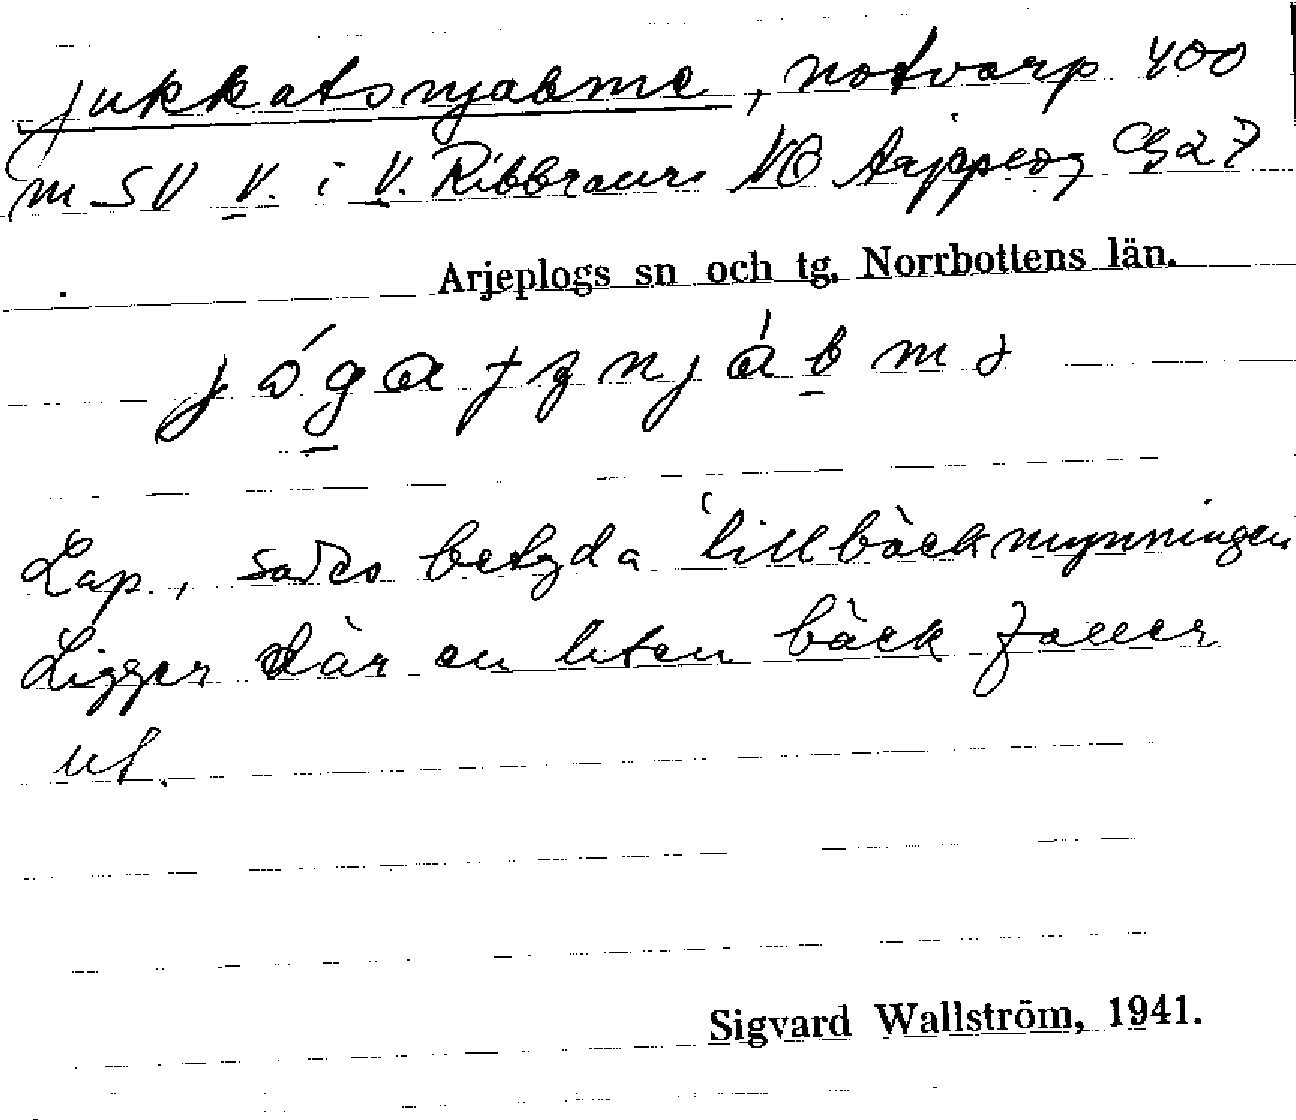 jukkatsnjabme, notvarp 400
m SV V. i V. Ribbraur NO Arjeplog Gb 27
Arjeplogs sn och tg. Norrbottens län.
Lap., sades betyda 'lillbäckmynningen
Ligger där en liten bäck faller
ut.
Sigvard Wallström, 1941.